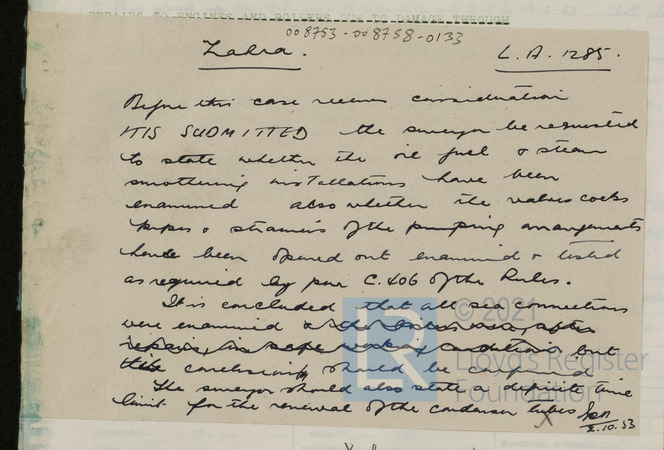 DETAILS OF REPAIRS AND RENEWALS DUE TO DAMAGE THROUGH
008753-008758-0133
Zahra.
L.A. 1285.
Before this case receives consideration
IT IS SUBMITTED the surveyor be requested
to state whether the oil fuel & steam
smothering installations have been
examined also whether the valves cocks
pipes & strainers of the pumping arrangements
have been opened out examined & tested
as required by para C.406 of the Rules.
It is concluded that all sea connections
were examined & after
repairs, in safe working condition but
this conclusion should be confirmed
The surveyor should also state a definite time
limit for the renewal of the condenser tubes
2.10.53
X
© 2021
LR
Lloyd's Register
Foundation